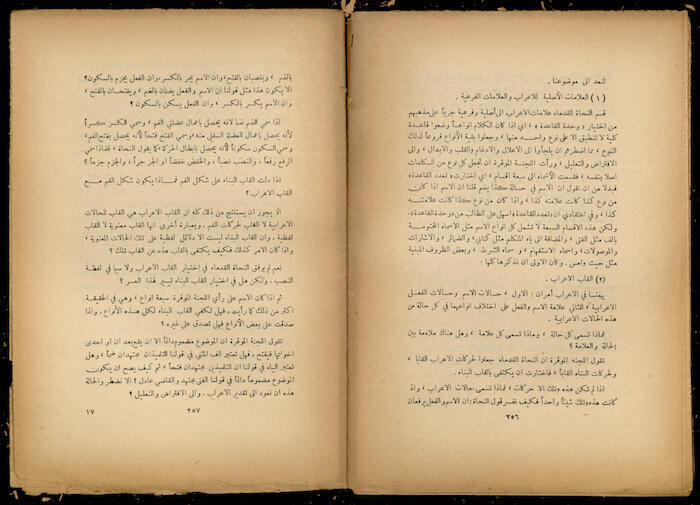 لنعد الى موضوعنا .
( ١ ) العلامات الأصلية للاعراب والعلامات الفرعية .
قسم النحاة القدماء علامات الاعراب الى أصلية وفرعية جرياً على مذهبهم
من اختيار « وحدة القاعدة » اي اذا كان الكلام انواعاً وضعوا قاعدة
كلية لا تنطبق الا على نوع واحد منها ، وجعلوا بقية الأنواع فروعاً لذلك
النوع ، مما اضطرهم ان يلجأوا الى الاعلال والادغام والقلب والابدال ، والى
الافتراض والتعليل ، ورأت اللجنة الموقرة ان تجعل كل نوع من الكلمات
اصلا بنفسه ، فقسمت الأسماء الى سبعة اقسام ، اي اختارت « تعدد القاعدة »
فبدلا من ان نقول ان الاسم في حالة كذا يضم قلنا ان الاسم اذا كان
من نوع كذا كانت علامته كذا ، واذا كان من نوع كذا كانت علامته
كذا ، وفي اعتقادي ان « تعدد القاعدة » اسهل على الطالب من « وحدة القاعدة »
ولكن هذه الاقسام السبعة لا تشمل كل انواع الاسم مثل الاسماء المختومة
بالف مثل الفتى ، والمضافة الى ياء المتكلم مثل كتابي ، والضمائر ، والاشارات
والموصولات ، واسماء الاستفهام ، وسماء الشرط ، وبعض الظروف المبنية
مثل حيث وامس . وكان الاولى ان نذكرها كلها .
( ٢ ) القاب الاعراب .
يهمنا في الاعراب أمران : الاول ، حالات الاسم وحالات الفعل
الاعرابية ، الثاني علامة الاسم والفعل على اختلاف انواعهما في كل حالة من
هذه الحالات الاعرابية .
فماذا تسمى كل حالة ، وماذا تسمى كل علامة ، وهل هناك ملاءمة بين
الحالة والعلامة ؟
تقول اللجنة الموقرة ان النحاة القدماء جعلوا لحركات الاعراب القابا ،
ولحركات البناء القاباً ، فاختارت ان يكتفى بالقاب البناء .
اذا لم تكن هذه وتلك الا حركات ، فماذا تسمى حالات الاعراب ، واذ
كانت هذه وتلك شيئاً واحداً فكيف نفسر قول النحاة : ان الاسم والفعل يرفعان
٢٥٦
بالضم ، وينصبان بالفتح ، وان الاسم يجر بالكسر ، وان الفعل يجزم بالسكون ؟
الا يكون هذا مثل قولنا ان الاسم والفعل يضمان بالضم ، ويفتحان بالفتح ،
وان الاسم يكسر بالكسر ، وان الفعل يسكن بالسكون ؟
اذا سمي الضم ضما لانه يحصل باعمال عضلتي الفم ، وسمي الكسر كسراً
لأنه يحصل باعمال العضلة السفلى منه ، وسمي الفتح فتحاً لأنه يحصل بفتح الفم ،
وسمي السكون سكوناً لأنه يحصل بابطال الحركة ، كما يقول النحاة ، فلماذا سمي
الرفع رفعاً ، والنصب نصباً ، والخفض خفضاً او الجر جراً ، والجزم جزماً ؟
اذا دلت القاب البناء على شكل الفم فماذا يكون شكل الفم مع
القاب الاعراب ؟
الا يجوز ان يستنتج من ذلك كله ان القاب الاعراب هي القاب للحالات
الاعرابية لا القاب لحركات الفم ، وبعبارة أخرى انها القاب معنوية لا القاب
لفظية ، وان القاب البناء ليست الا دلائل لفظية على تلك الحالات المعنوية ،
واذا كان الامر كذلك فكيف يكتفى بالقاب هذه عن القاب تلك ؟
نعم لم يوفق النحاة القدماء في اختيار القاب الاعراب ولا سيما في لفظية
النصب ، ولكن هل في اختيار القاب البناء تيسير لهذا العسر ؟
ثم اذا كان الاسم على رأي اللجنة الموقرة سبعة انواع ، وهي في الحقيقة
اكثر من ذلك كما رأيت ، فهل تكفي القاب البناء لكل هذه الأنواع ، واذا
صدقت على بعض الأنواع فهل تصدق على غيره ؟
تقول اللجنة الموقرة ان الموضوع مضموم دائماً الا ان يقع بعد ان او احدى
اخواتها فيفتح ، فهل تعتبر الف المثنى في قولنا التلميذان مجتهدان ضماً ، وهل
تعتبر الياء في قولنا ان التلميذين مجتهدان فتحاً ، ثم كيف يصح ان يكون
الموضوع مضموماً دائماً في قولنا الفتى مجتهد والقاضي عادل ؟ الا نضطر والحالة
هذه ان نعود الى تقدير الاعراب ، والى الافتراض والتعليل ؟
٢٥٧
١٧